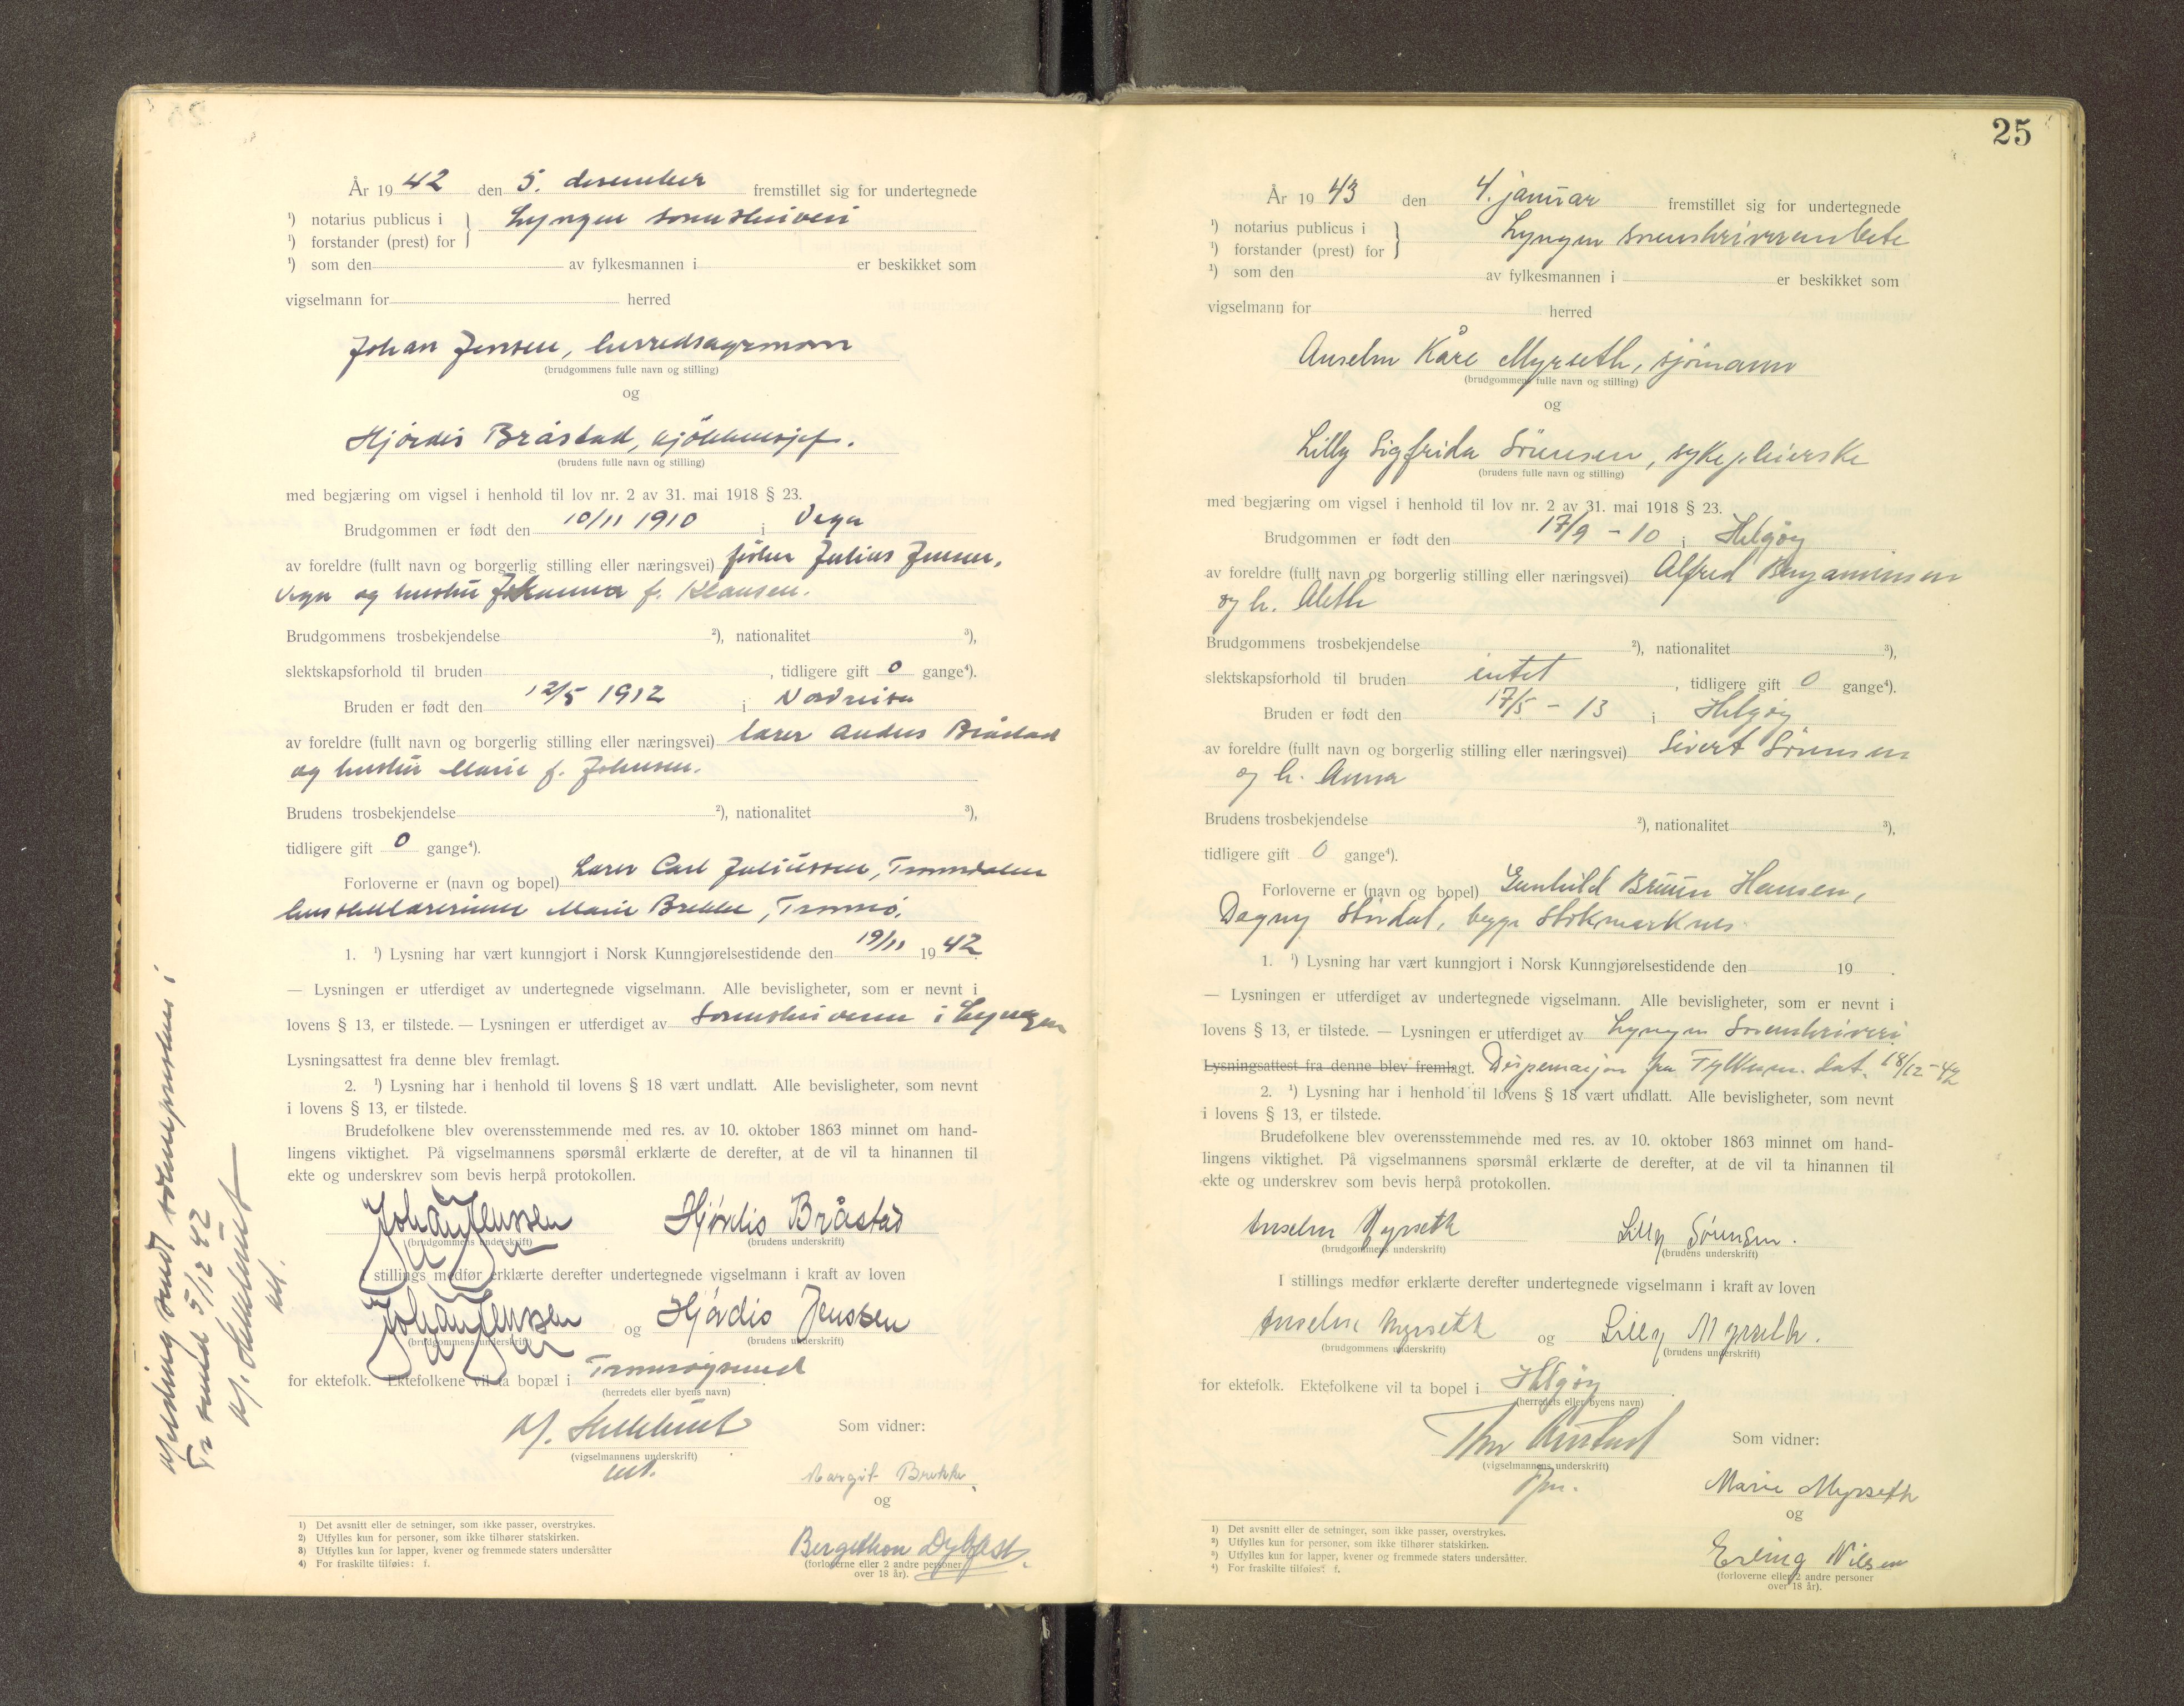 År 19 42 den 5. desember fremstillet sig for undertegnede
¹) notarius publicus i } Lyngen sorenskriveri
¹) forstander (prest) for
¹) som den av fylkesmannen i er beskikket som
vigselmann for herred
Johan Jensen, herredsagronom
(brudgommens fulle navn og stilling)
og
Hjørdis Bråstad, kjökkensjef.
(brudens fulle navn og stilling)
med begjæring om vigsel i henhold til lov nr. 2 av 31. mai 1918 § 23.
Brudgommen er født den 10/11 1910 i Vega
av foreldre (fullt navn og borgerlig stilling eller næringsvei) fisker Julius Jensen,
Vega og hustru Johanna f. Klausen.
Brudgommens trosbekjendelse ²), nationalitet ³),
slektskapsforhold til bruden , tidligere gift 0 gange⁴).
Bruden er født den 12/5 1912 i Nordreisa
av foreldre (fullt navn og borgerlig stilling eller næringsvei) lærer Anders Bråstad
og hustru Marie f. Johnsen.
Brudens trosbekjendelse ²), nationalitet ³),
tidligere gift 0 gange⁴).
Forloverne er (navn og bopel) Lærer Carl Juliussen, Tromsdalen
husstellærerinne Marie Brekke, Tromsö.
1. ¹) Lysning har vært kunngjort i Norsk Kunngjørelsestidende den 19/11 19 42
— Lysningen er utferdiget av undertegnede vigselmann. Alle bevisligheter, som er nevnt i
lovens § 13, er tilstede. — Lysningen er utferdiget av Sorenskriveren i Lyngen
Lysningsattest fra denne blev fremlagt.
2. ¹) Lysning har i henhold til lovens § 18 vært undlatt. Alle bevisligheter, som nevnt
i lovens § 13, er tilstede.
Brudefolkene blev overensstemmende med res. av 10. oktober 1863 minnet om hand-
lingens viktighet. På vigselmannens spørsmål erklærte de derefter, at de vil ta hinannen til
ekte og underskrev som bevis herpå protokollen.
Johan Jenssen Hjördis Bråstad
(brudgommens underskrift) (brudens underskrift)
I stillings medfør erklærte derefter undertegnede vigselmann i kraft av loven
Johan Jenssen og Hjördis Jenssen
(brudgommens underskrift) (brudens underskrift)
for ektefolk. Ektefolkene vil ta bopæl i Tromsøysund
(herredets eller byens navn)
Som vidner:
(vigselmannens underskrift)
Margit Brekke
og
Bergithon
(forloverne eller 2 andre personer
over 18 år).
1) Det avsnitt eller de setninger, som ikke passer, overstrykes.
2) Utfylles kun for personer, som ikke tilhører statskirken.
3) Utfylles kun for lapper, kvener og fremmede staters undersåtter
4) For fraskilte tilføies: f.
Melding sendt sokneprestem i
Tr.sund 5/12 42
25
År 19 43 den 4. januar fremstillet sig for undertegnede
¹) notarius publicus i } Lyngen sorenskriverembete
¹) forstander (prest) for
¹) som den av fylkesmannen i er beskikket som
vigselmann for herred
Anselm Kåre Myrseth, sjömann
(brudgommens fulle navn og stilling)
og
Lilly Sigfrida Sörensen, sykepleierske
(brudens fulle navn og stilling)
med begjæring om vigsel i henhold til lov nr. 2 av 31. mai 1918 § 23.
Brudgommen er født den 17/9 - 10 i Helgøy
av foreldre (fullt navn og borgerlig stilling eller næringsvei) Alfred Benjaminsen
og h. Aleth
Brudgommens trosbekjendelse ²), nationalitet ³),
slektskapsforhold til bruden intet , tidligere gift 0 gange⁴).
Bruden er født den 17/5 - 13 i Helgøy
av foreldre (fullt navn og borgerlig stilling eller næringsvei) Sivert Sörensen
og h. Anna
Brudens trosbekjendelse ²), nationalitet ³),
tidligere gift 0 gange⁴).
Forloverne er (navn og bopel) Gunhild Bruun Hansen,
Dagny Stordal, begge Stokmarknes
1. ¹) Lysning har vært kunngjort i Norsk Kunngjørelsestidende den 19 .
— Lysningen er utferdiget av undertegnede vigselmann. Alle bevisligheter, som er nevnt i
lovens § 13, er tilstede. — Lysningen er utferdiget av Lyngen Sorenskriveri
Lysningsattest fra denne blev fremlagt. Dispensasjon fra Fylkesm. dat. 18/12-42
2. ¹) Lysning har i henhold til lovens § 18 vært undlatt. Alle bevisligheter, som nevnt
i lovens § 13, er tilstede.
Brudefolkene blev overensstemmende med res. av 10. oktober 1863 minnet om hand-
lingens viktighet. På vigselmannens spørsmål erklærte de derefter, at de vil ta hinannen til
ekte og underskrev som bevis herpå protokollen.
Anselm Myrseth Lilly Sörensen.
(brudgommens underskrift) (brudens underskrift)
I stillings medfør erklærte derefter undertegnede vigselmann i kraft av loven
Anselm Myrseth og Lilly Myrseth.
(brudgommens underskrift) (brudens underskrift)
for ektefolk. Ektefolkene vil ta bopel i Helgöy
(herredets eller byens navn)
Som vidner:
(vigselmannens underskrift)
Marie Myrseth
og
Erling Nilsen
(forloverne eller 2 andre personer
over 18 år).
1) Det avsnitt eller de setninger, som ikke passer, overstrykes.
2) Utfylles kun for personer, som ikke tilhører statskirken.
3) Utfylles kun for lapper, kvener og fremmede staters undersåtter.
4) For fraskilte tilføies: f.